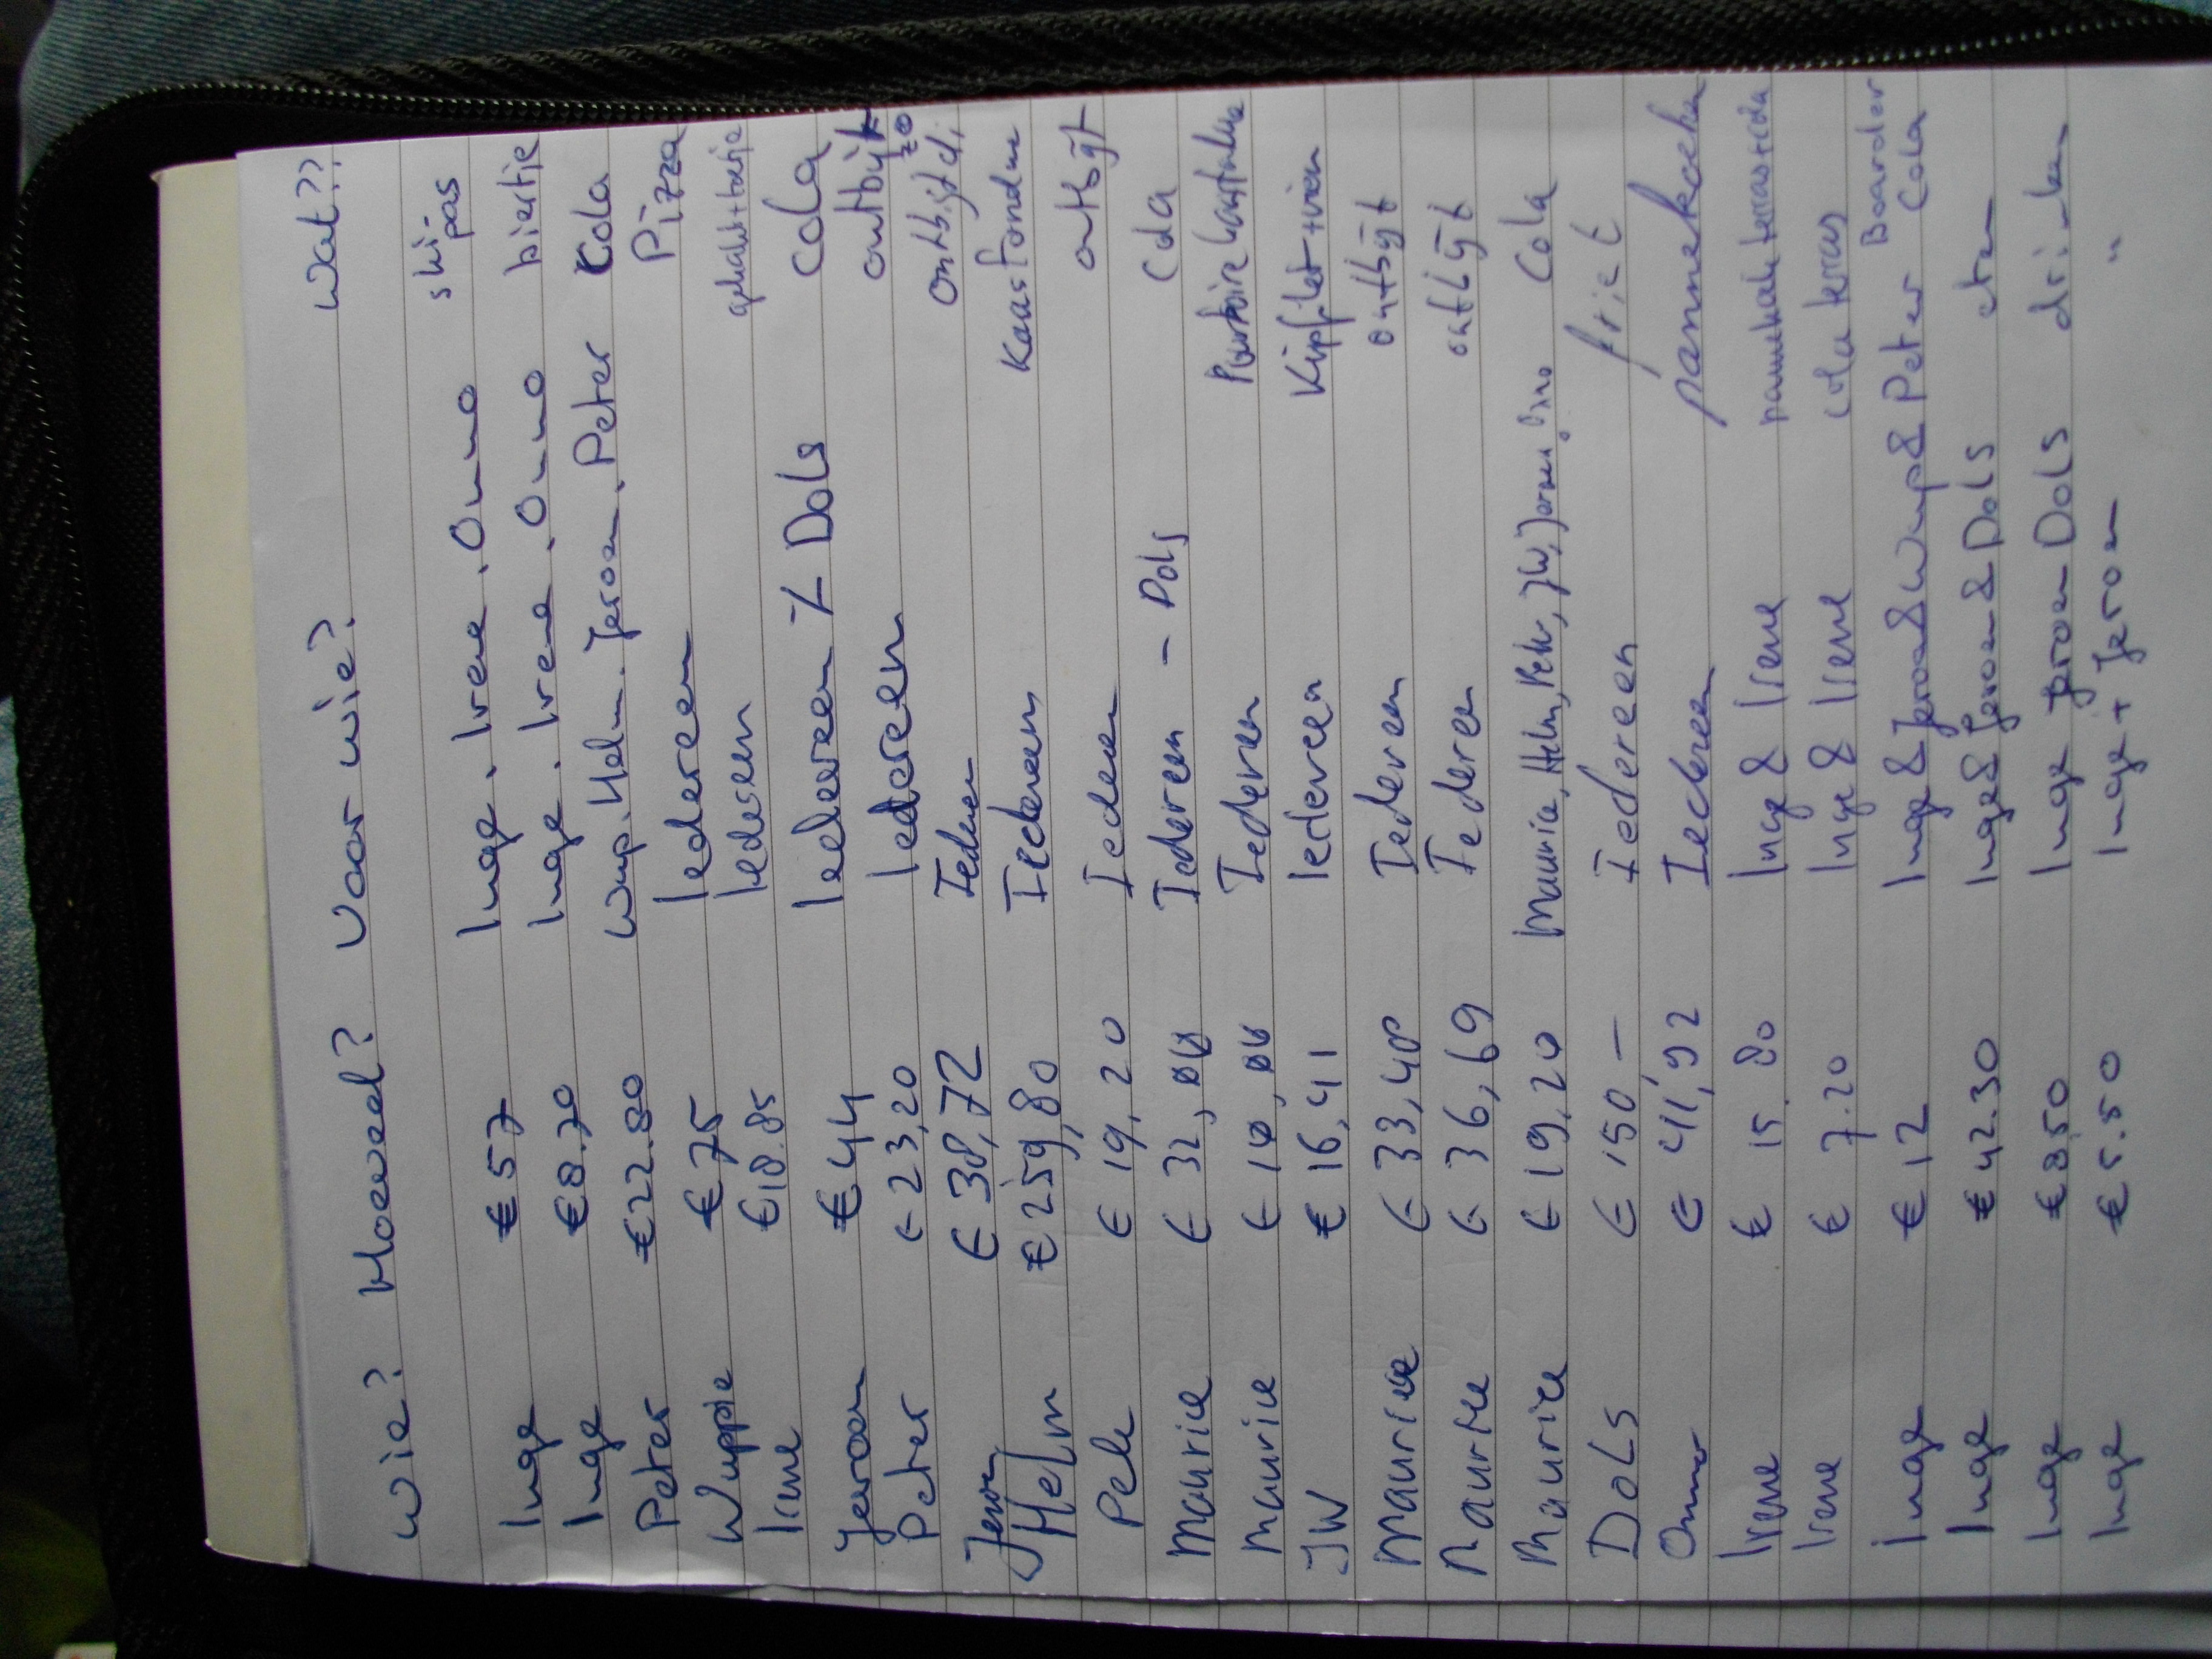 Wie? Hoeveel? Voor wie? Wat??
Inge €57 Inge, Irene, Onno ski-pas
Inge €8.70 Inge, Irene, Onno biertje
Peter €22.80 Wup, Helm, Jeroen, Peter Cola
Wuppie €75 Iedereen Pizza
Irene €18.85 Iedereen
Jeroen €44 Iedereen % Dols Cola
Peter €23,20 Iedereen ontbijt zo
Jeroen €38,72 Iedereen ontbijt di
Helm €259,80 Iedereen Kaasfondue
Pete €19,20 Iedereen ontbijt
Maurice €32,00 Iedereen - Dols Cola
Maurice €10,00 Iedereen
JW €16,41 Iedereen Kipfilet+vien
Maurice €33,40 Iedereen ontbijt
Maurice €36,69 Iedereen ontbijt
Maurice €19,20 Maurice, Helm, Peter, JW, Jeroen, Onno Cola
Dols €150 - Iedereen friet
Onno €41,92 Iedereen pannekoeken
Irene €15.80 Inge & Irene
Irene €7.20 Inge & Irene cola terras
Inge €12 Inge & Jeroen & Wup & Peter Boarder Cola
Inge €42.30 Inge & Jeroen & Dols eten
Inge €8.50 Inge Jeroen Dols drinken
Inge €5.50 Inge + Jeroen "